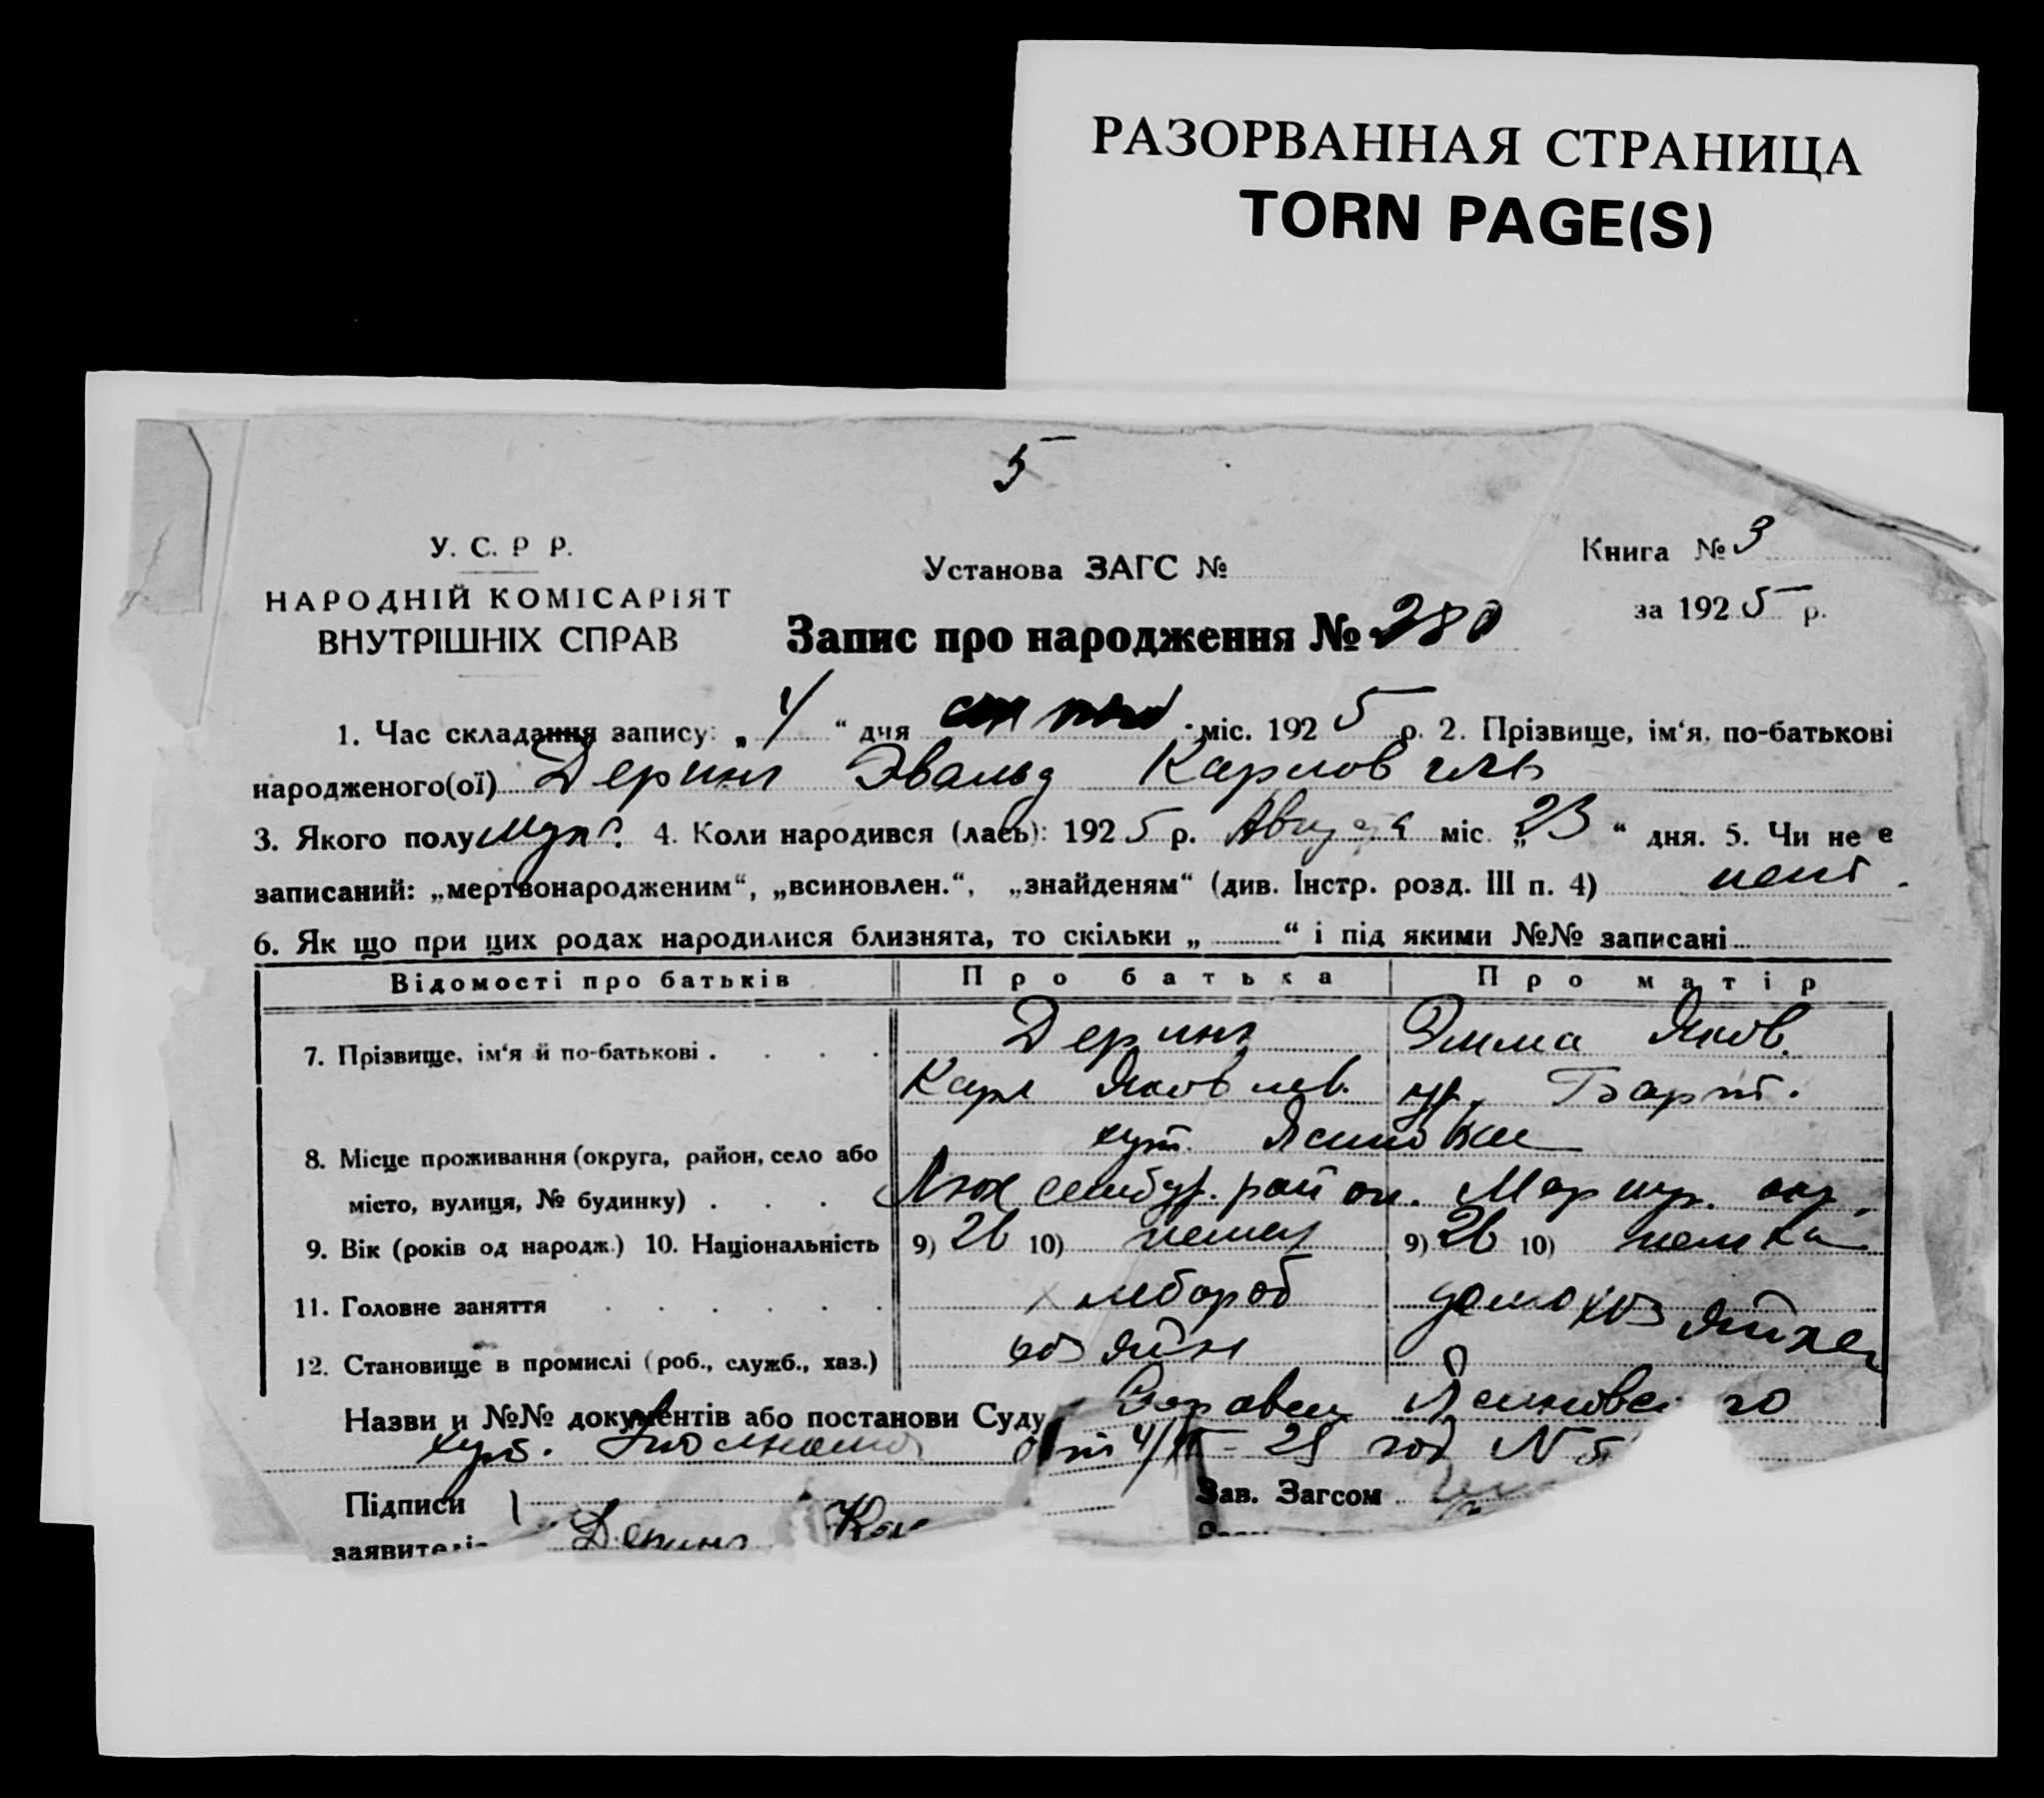 РАЗОРВАННАЯ СТРАНИЦА
TORN PAGE(S)
5
У. С. Р Р.
НАРОДНІЙ КОМІСАРІЯТ
ВНУТРІШНІХ СПРАВ
Установа ЗАГС №
Книга № 3
за 1925 р.
Запис про народження № 280
1. Час складання запису: „ 4 “ дня міс. 1925 р. 2. Прізвище, ім‘я, по-батькові
народженого(ої) Деринг Эвальд Карлович
3. Якого полу муж. 4. Коли народився (лась): 1925 р. Августа міс. „ 23 “ дня. 5. Чи не е
записаний: „мертвонародженим“, „всиновлен.“, „знайденям“ (див. Інстр. розд. III п. 4) нет.
6. Як що при цих родах народилися близнята, то скільки „ “ і під якими №№ записані
Відомості про батьків Про батька Про матір
7. Прізвище, ім‘я й по-батькові . . . . Деринг Эмма Яков.
Карл Яковлев. ур. Барт.
8. Місце проживання (округа, район, село або хут. Ясиновка
місто, вулиця, № будинку) . . . Люксембур. район. Мариуп. окр.
9. Вік (років од народж.) 10. Національність 9) 26 10) немец 9) 26 10) немка
11. Головне заняття . . . . . . хлебороб домохозяйка
12. Становище в промислі (роб., служб., хаз.) хозяйн
Назви и №№ документів або постанови Суду Ясиновского
хут. от 4/ - 25 год N 5
Підписи Зав. Загсом
заявителі Деринг